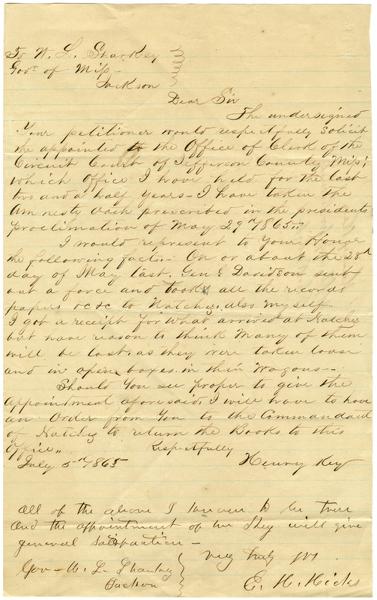 To W. L. Sharkey
Govr of Miss
Jackson
Dear Sir
The undersigned
Your petitioner would respectfully solicit
the appointed to the Office of Clerk of the
Circuit Court of Jefferson County Miss;
which office I have held for the last
two and a half years - I have taken the
Amnesty Oath prescribed in the presidents
Proclamation of May 29th 1865 -
I would represent to Your Honor
the following facts - On or about the 28th
day of May last, Genl Davidson sent
out a force and took all the records
papers &c &c to Natchez, also myself
I got a receipt for what arrived at Natchez
but have reason to think many of them
will be lost, as they were taken loose
and in open boxes in their Wagons -
Should You see proper to give the
Appointment aforesaid, I will have to have
an Order from You to the Commandant
of Natchez to return the Books to this
Office,,
Respectfully
July 5th 1865
Henry Key
All of the above I know to be true
and the appointment of Mr Key will give
general satisfaction -
Very truly yrs
Gov - W. L. Sharkey
Jackson
E. H. Hicks